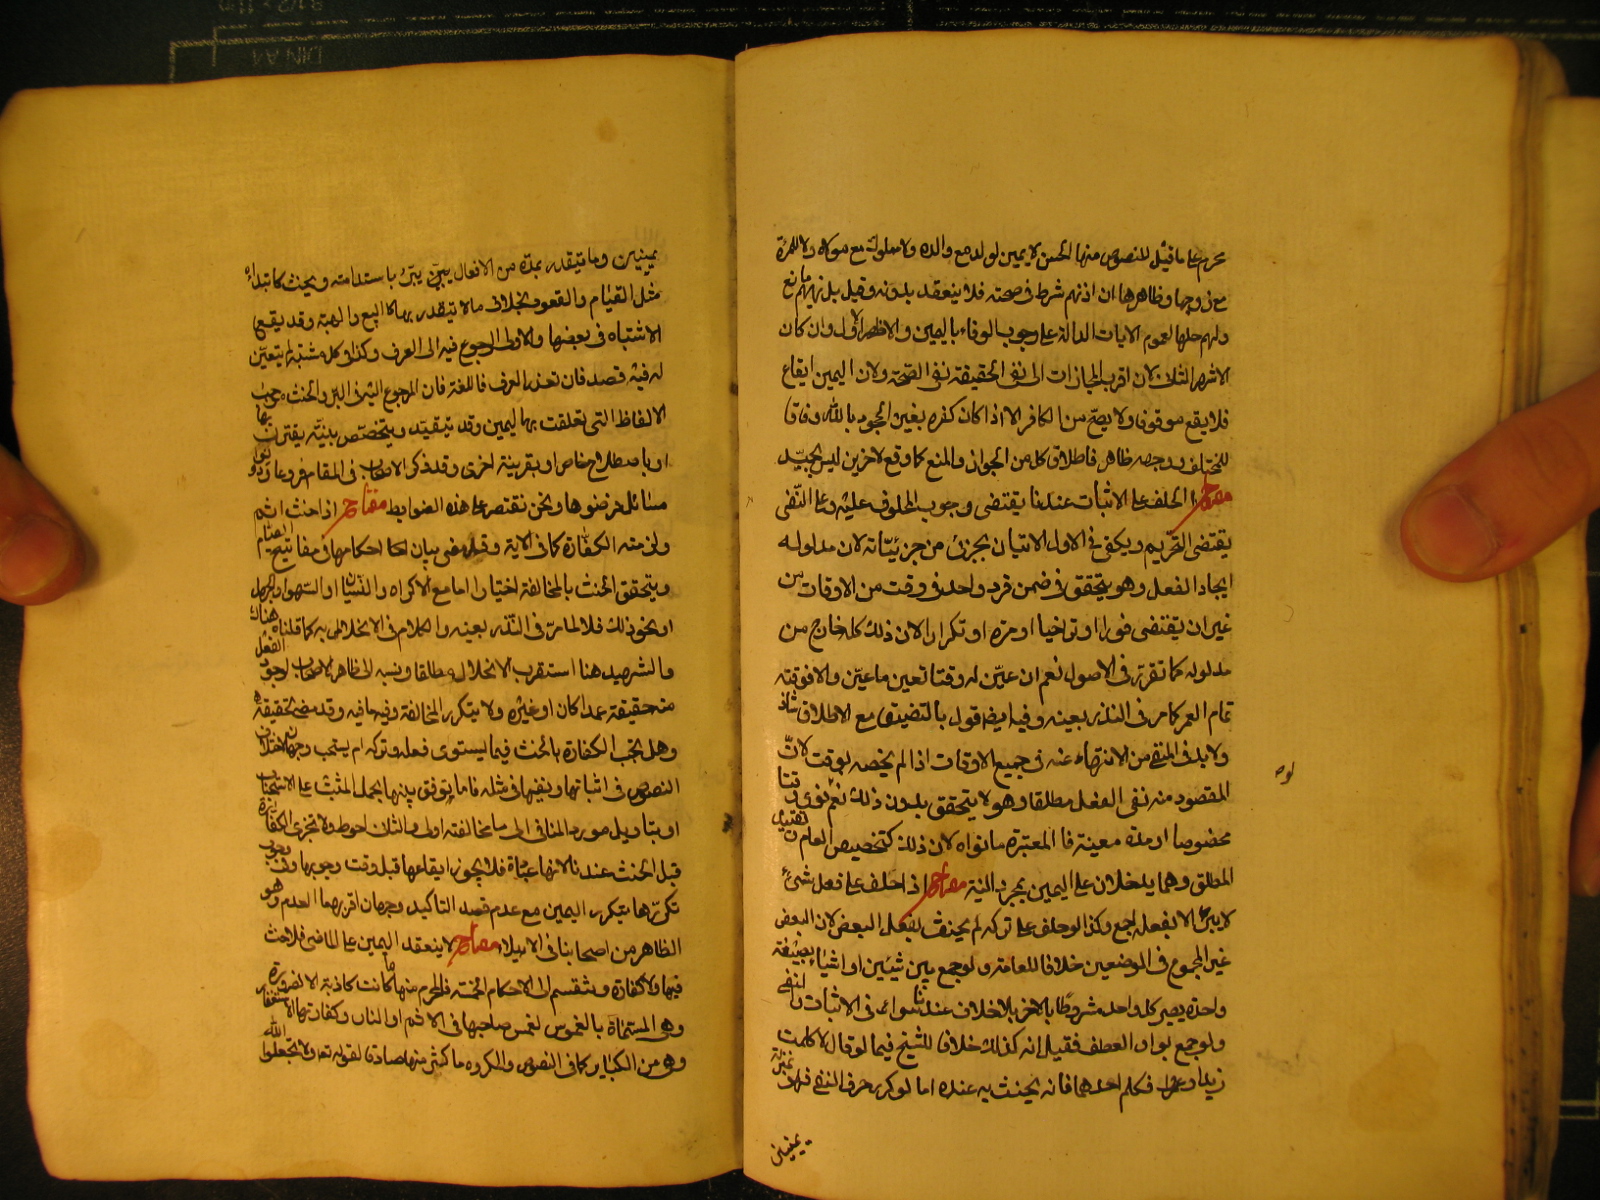 محرم على ما قيل للنصوص منها الحسن لا يمين لولد مع والده ولا مملوك مع مولاه ولا للمرأة
مع زوجها وظاهرها ان اذنهم شرط في صحته فلا ينعقد بدونه وقيل بل نهيهم مانع
ولهم حلها لعموم الايات الدالة على وجوب الوفاء باليمين والاظهر الاول وان كان
الاشهر الثاني لان اقرب المجازات الى نفي الحقيقة نفي الصحة ولان اليمين ايقاع
فلا يقع موقوفا ولا يصح من الكافر الا اذا كان كفره بغير الجحود بالله وفاقا
للمختلف ووجهه ظاهر فاطلاق كل من الجواز والمنع كما وقع لاخرين ليس بجيد
مفتاح الحلف على الاثبات عندنا يقتضي وجوب المحلوف عليه وعلى النفي
يقتضي التحريم ويكفي في الاول الاتيان بجزئي من جزئياته لان مدلوله
ايجاد الفعل وهو يتحقق في ضمن فرد واحد في وقت من الاوقات من
غير ان يقتضي فورا او تراخيا او مرة او تكرارا لان ذلك كله خارج من
مدلوله كما تقرر في الاصول نعم ان عين له وقتا تعين ما عين والا فوقته
تمام العمر كما مر في النذر بعينه وفيه ايضا قول بالتضيق مع الاطلاق شاذ
ولا بد في المنفي من الانتهاء عنه في جميع الاوقات اذا لم يخصه بوقت لان
المقصود منه نفي الفعل مطلقا وهو لا يتحقق بدون ذلك نعم لو نوى وقتا
مخصوصا او مدة معينة فالمعتبرة ما نواه لان ذلك كتخصيص العام وتقييد
المطلق وهما يدخلان على اليمين بمجرد النية مفتاح اذا حلف على فعل شيء
لا يبر الا بفعله اجمع وكذا لو حلف على تركه لم يحنث بفعل البعض لان البعض
غير المجموع في الموضعين خلافا للعامة ولو جمع بين شيئين او اشياء بصيغة
واحدة يصير كل واحد مشروطا بالاخر بلا خلاف عندنا سواء في الاثبات والنفي
ولو جمع بواو العطف فقيل انه كذلك خلافا للشيخ فيما لو قال لا كلمت
زيدا وعمرا فكلم احدهما فانه يحنث به عنده اما لو كرر حرف النفي فهو بمنزلة
يمينين
يمينين وما يتقدر بمدة من الافعال يبر باستدامته ويحنث كابتداءه
مثل القيام والقعود بخلاف ما لا يتقدر بها كالبيع والهبة وقد يقع
الاشتباه في بعضها والاولى الرجوع فيه الى العرف وكذا في كل مشتبه لم يتعين
له فيه قصد فان تعذر العرف فاللغة فان المرجوع اليه في البر والحنث موجب
الالفاظ التي تعلقت بها اليمين وقد تتقيد ويتخصص بنية يقترن بها
او باصطلاح خاص او بقرينة اخرى وقد ذكر الاصحاب في المقام فروعا
مسائل فرضوها ونحن نقتصر على هذه الضوابط مفتاح اذا حنث اثم
ولزمته الكفارة كما في الاية وقد مضى بيان احكامها في مفاتيح الصيام
ويتحقق الحنث بالمخالفة اختيارا اما مع الاكراه والنسيان او السهو او الجهل
او نحو ذلك فلا لما مر في النذر بعينه والكلام في الانحلال به كما قلناه هناك
والشهيد هنا استقرب الانحلال مطلقا ونسبه الى ظاهر الاصحاب لوجود الفعل
متحقيقة عمدا كان او غيره ولا يتكرر المخالفة وفيه ما فيه وقد مضى تحقيقه
وهل تجب الكفارة بالحنث فيما يستوى فعله وتركه ام يستحب وجهان لاختلاف
النصوص في اثباتها ونفيها في مثله فاما يوفق بينها بحمل المثبت على الاستحباب
او بتاويل مورد المنافي الى ما مخالفته اولى والثاني احوط ولا تجزي الكفارة
قبل الحنث عندنا لانها عبادة فلا يجوز ايقاعها قبل وقت وجوبها وفي وجوب
تكررها بتكرر اليمين مع عدم قصد التاكيد وجهان اقربهما العدم وهو
الظاهر من اصحابنا في الايلاء مفتاح لا ينعقد اليمين على الماضي فلا حنث
فيها ولا كفارة وتنقسم الى الاحكام الخمسة فالمحرم منها ما كانت كاذبة الا لضرورة
وهي المسماة بالغموس لغمس صاحبها في الاثم او النار وكفارتها الاستغفار
وهي من الكبائر كما في النصوص والمكروه ما كثر منها صادقا لقوله تعالى ولا تجعلوا الله